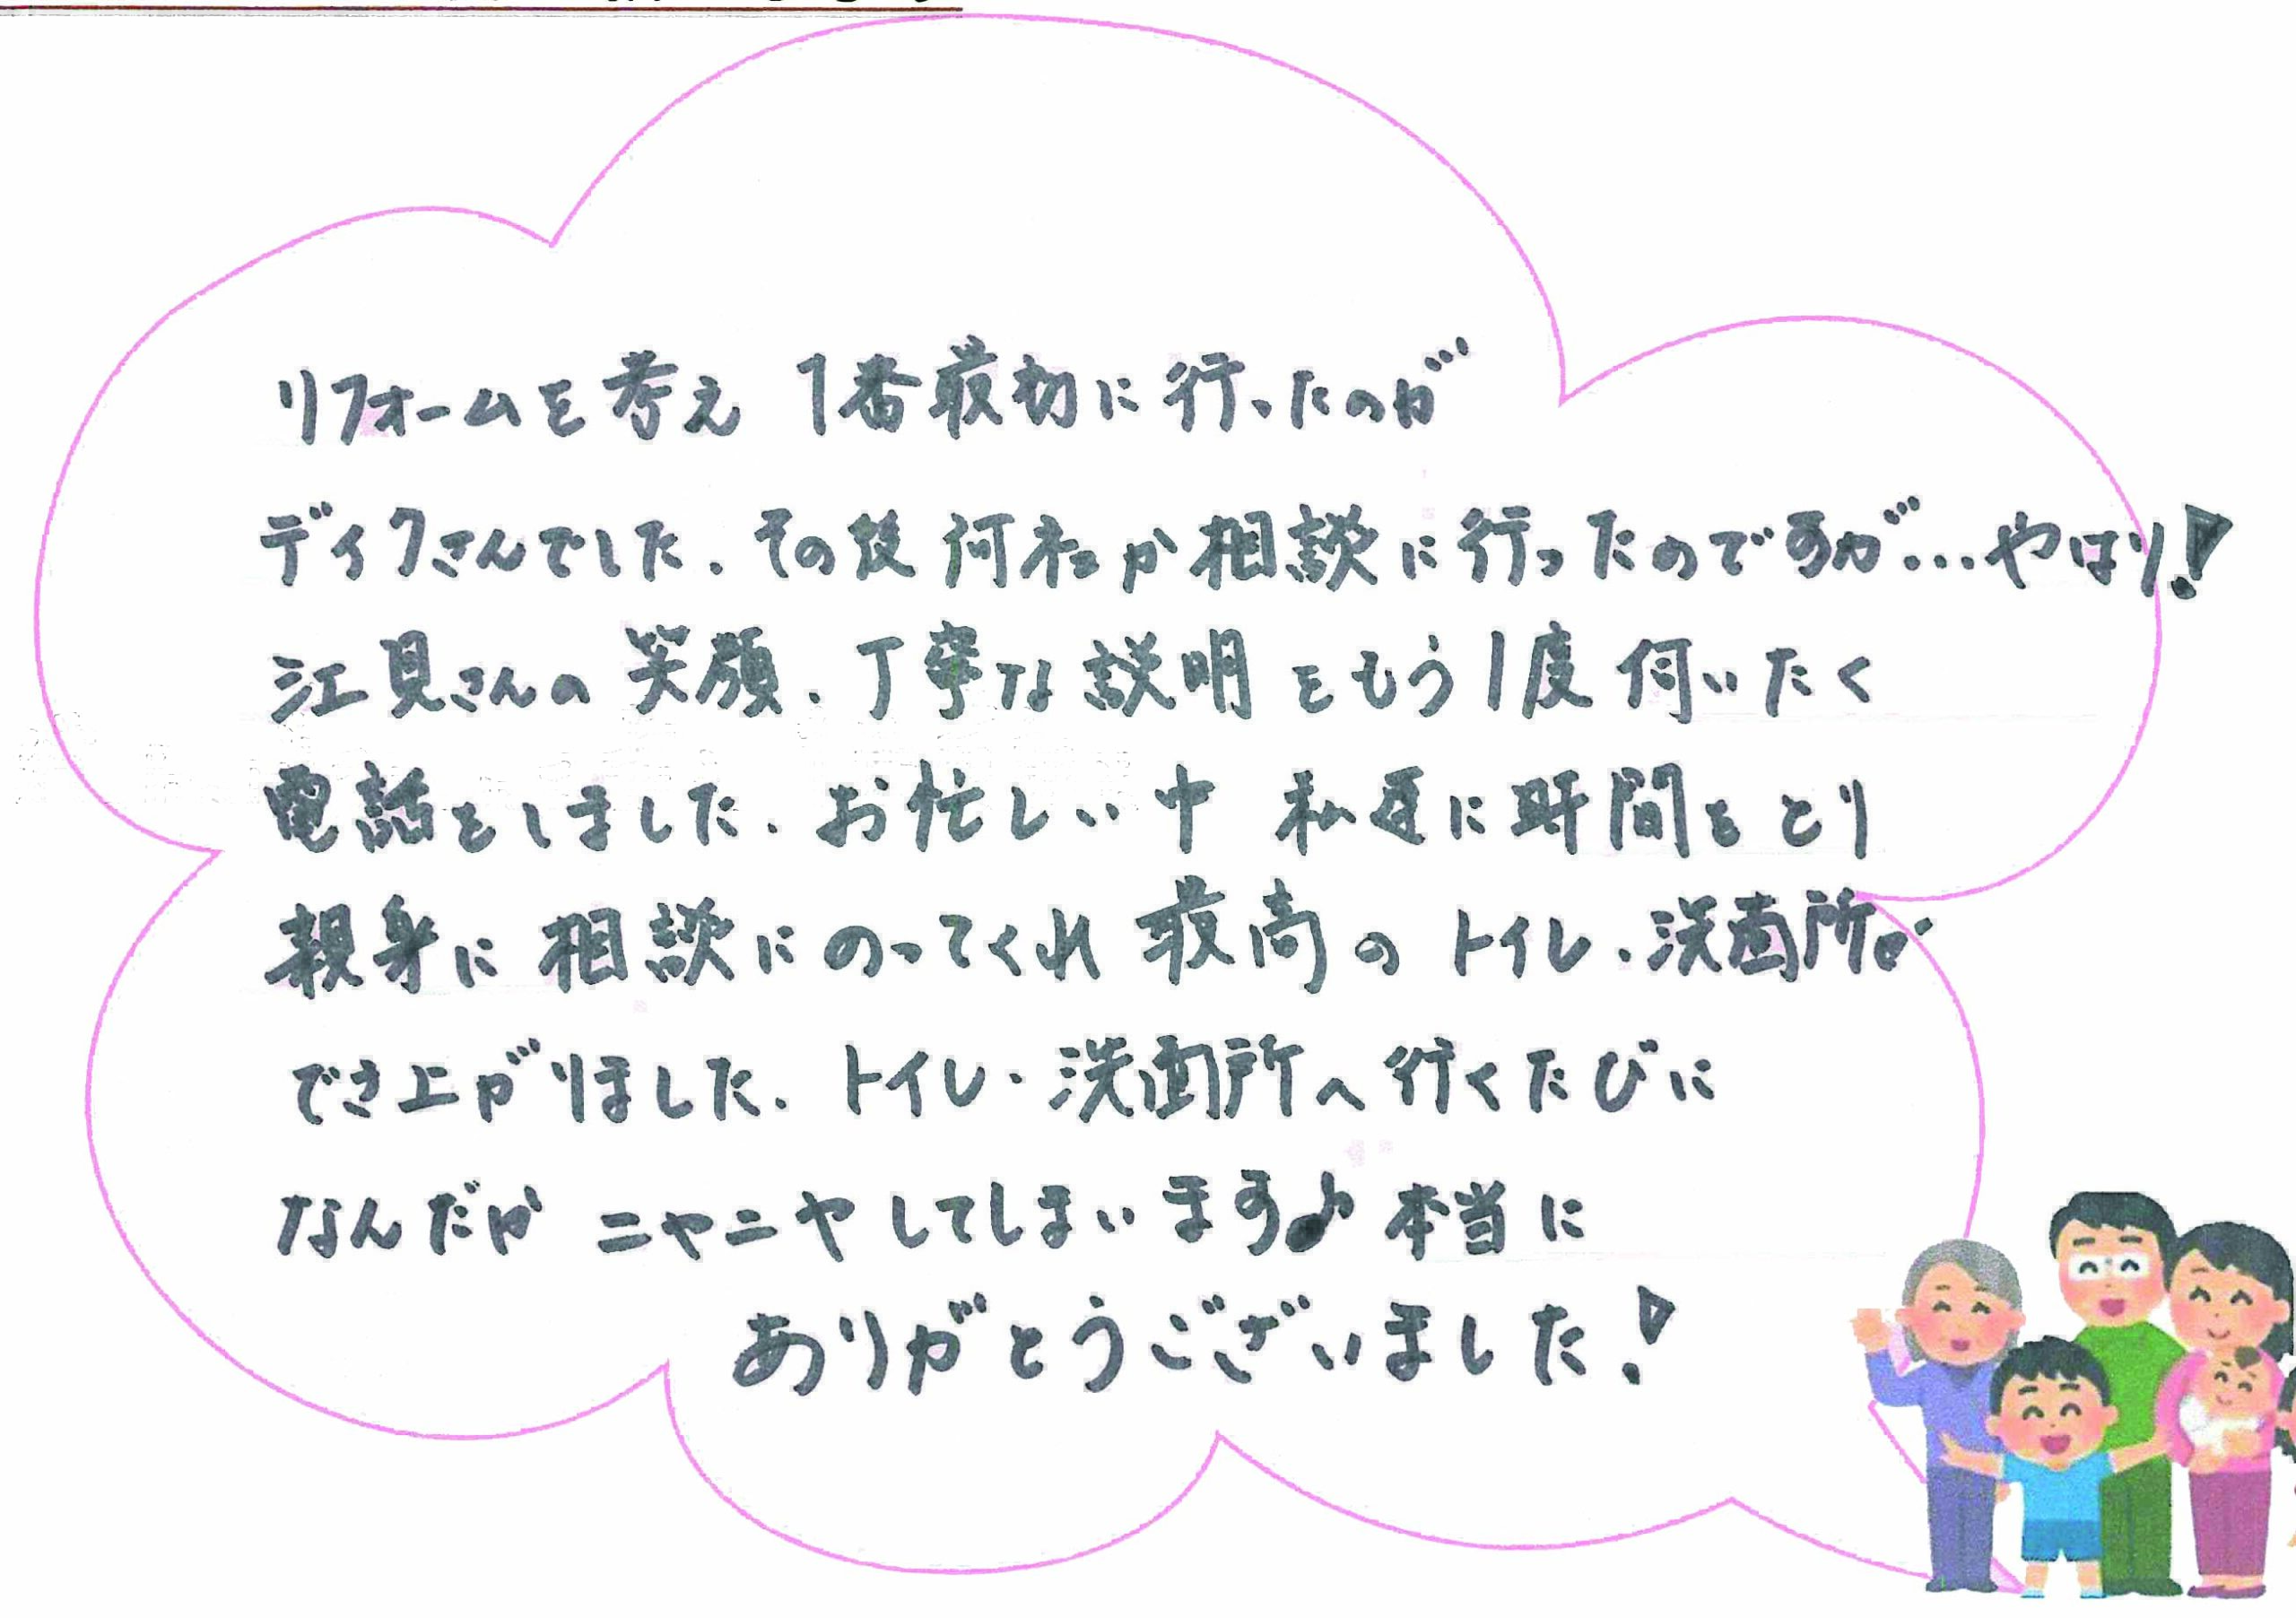 リフォームを考え 1番最初に行ったのが
ディクさんでした. その後 何社か相談に行ったのですが…やはり!
江見さんの笑顔. 丁寧な説明をもう1度伺いたく
電話をしました. お忙しい中 私達に時間をとり
親身に相談にのってくれ 最高の トイレ・洗面所が
でき上がりました. トイレ・洗面所へ行くたびに
なんだか ニヤニヤしてしまいます♪ 本当に
ありがとうございました!